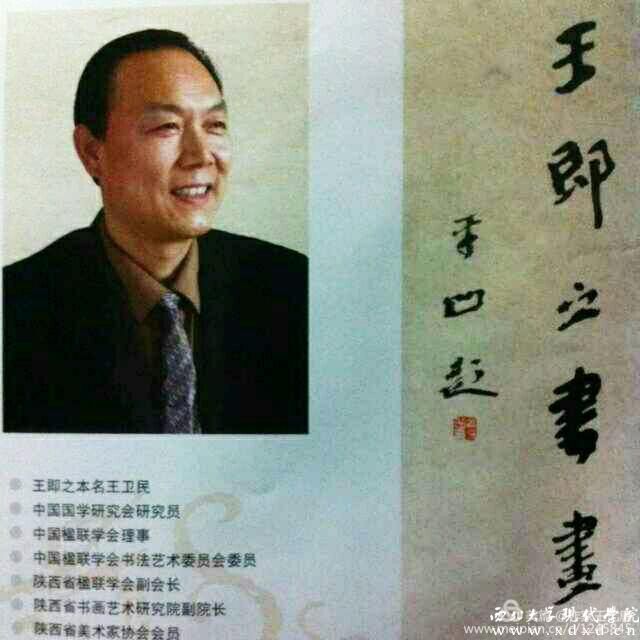 王即之書畫
平凹题
王即之本名王卫民
中国国学研究会研究员
中国楹联学会理事
中国楹联学会书法艺术委员会委员
陕西省楹联学会副会长
陕西省书画艺术研究院副院长
陕西省美术家协会会员
西北大学现代学院
www.xdxd.cn